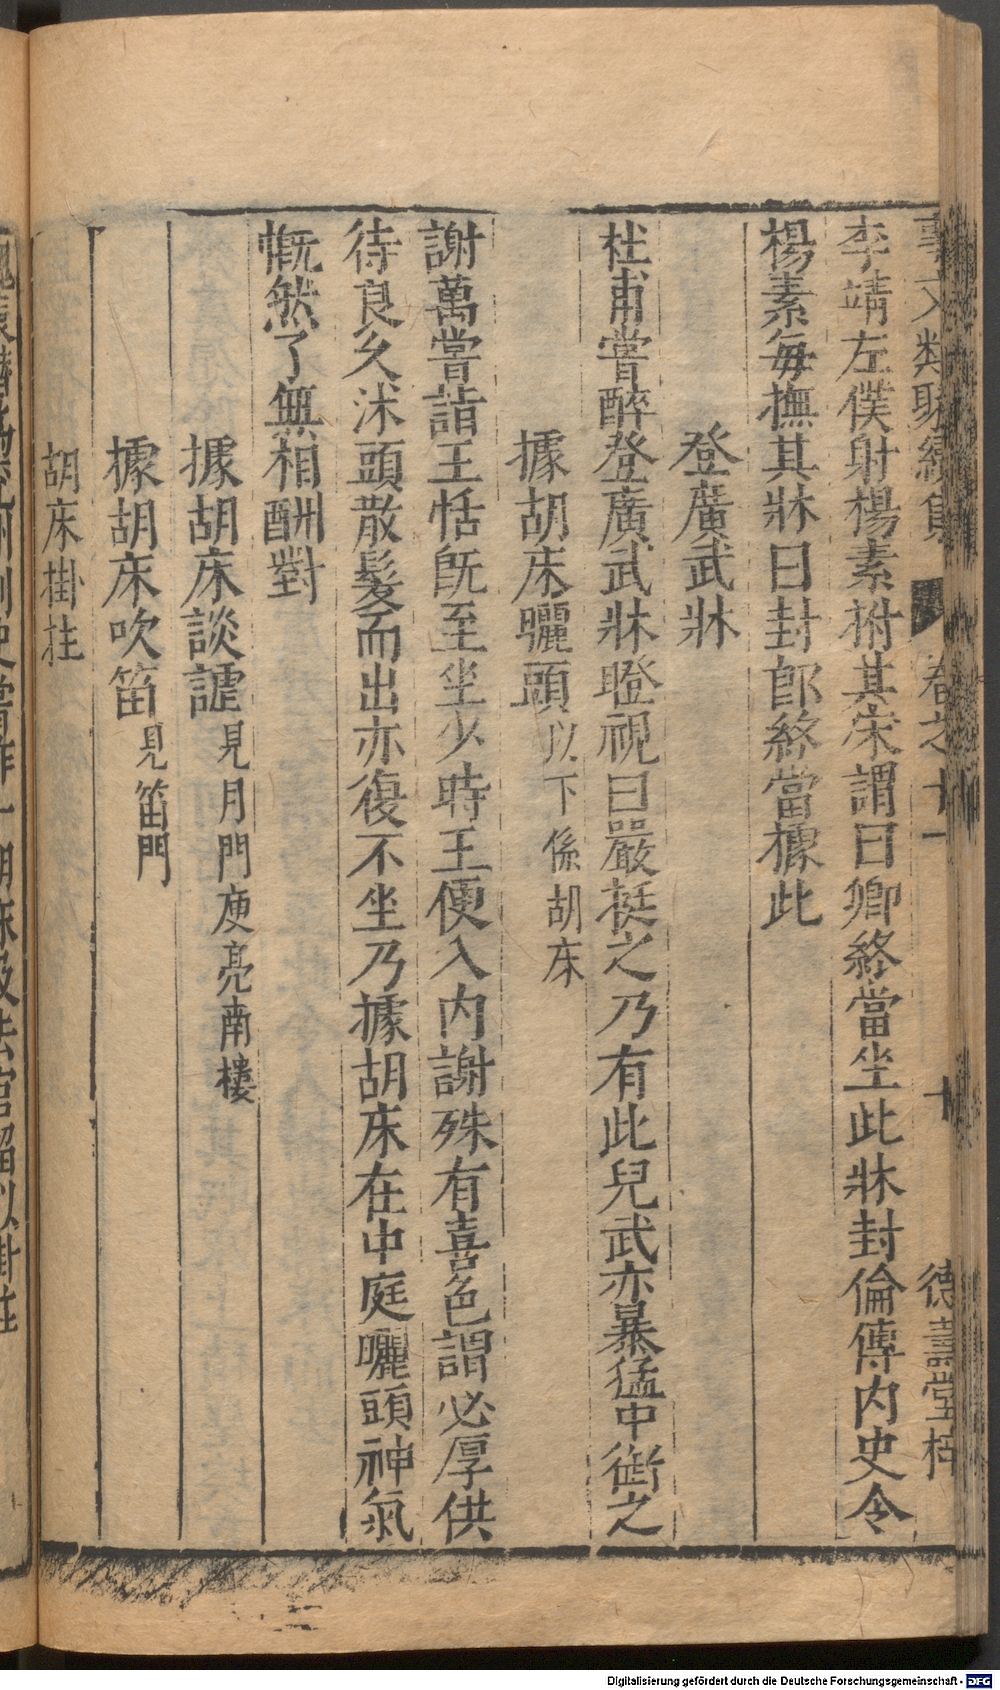 事文類聚續集 卷之十一 十 德壽堂梓
李靖左僕射楊素拊其床謂曰卿終當坐此牀封倫傳内史令
楊素每撫其牀曰封郎終當據此
登廣武牀
杜甫嘗醉登廣武牀瞪視曰嚴挺之乃有此兒武亦暴猛中銜之
據胡床曬頭以下係胡床
謝萬嘗詣王恬既至坐少時王便入内謝殊有喜色謂必厚供
待良久沐頭散髮而出亦復不坐乃據胡床在中庭曬頭神氣
慨然了無相酬對
據胡床談謔見月門庾亮南樓
據胡床吹笛見笛門
胡床掛柱
Digitalisierung gefördert durch die Deutsche Forschungsgemeinschaft - DFG